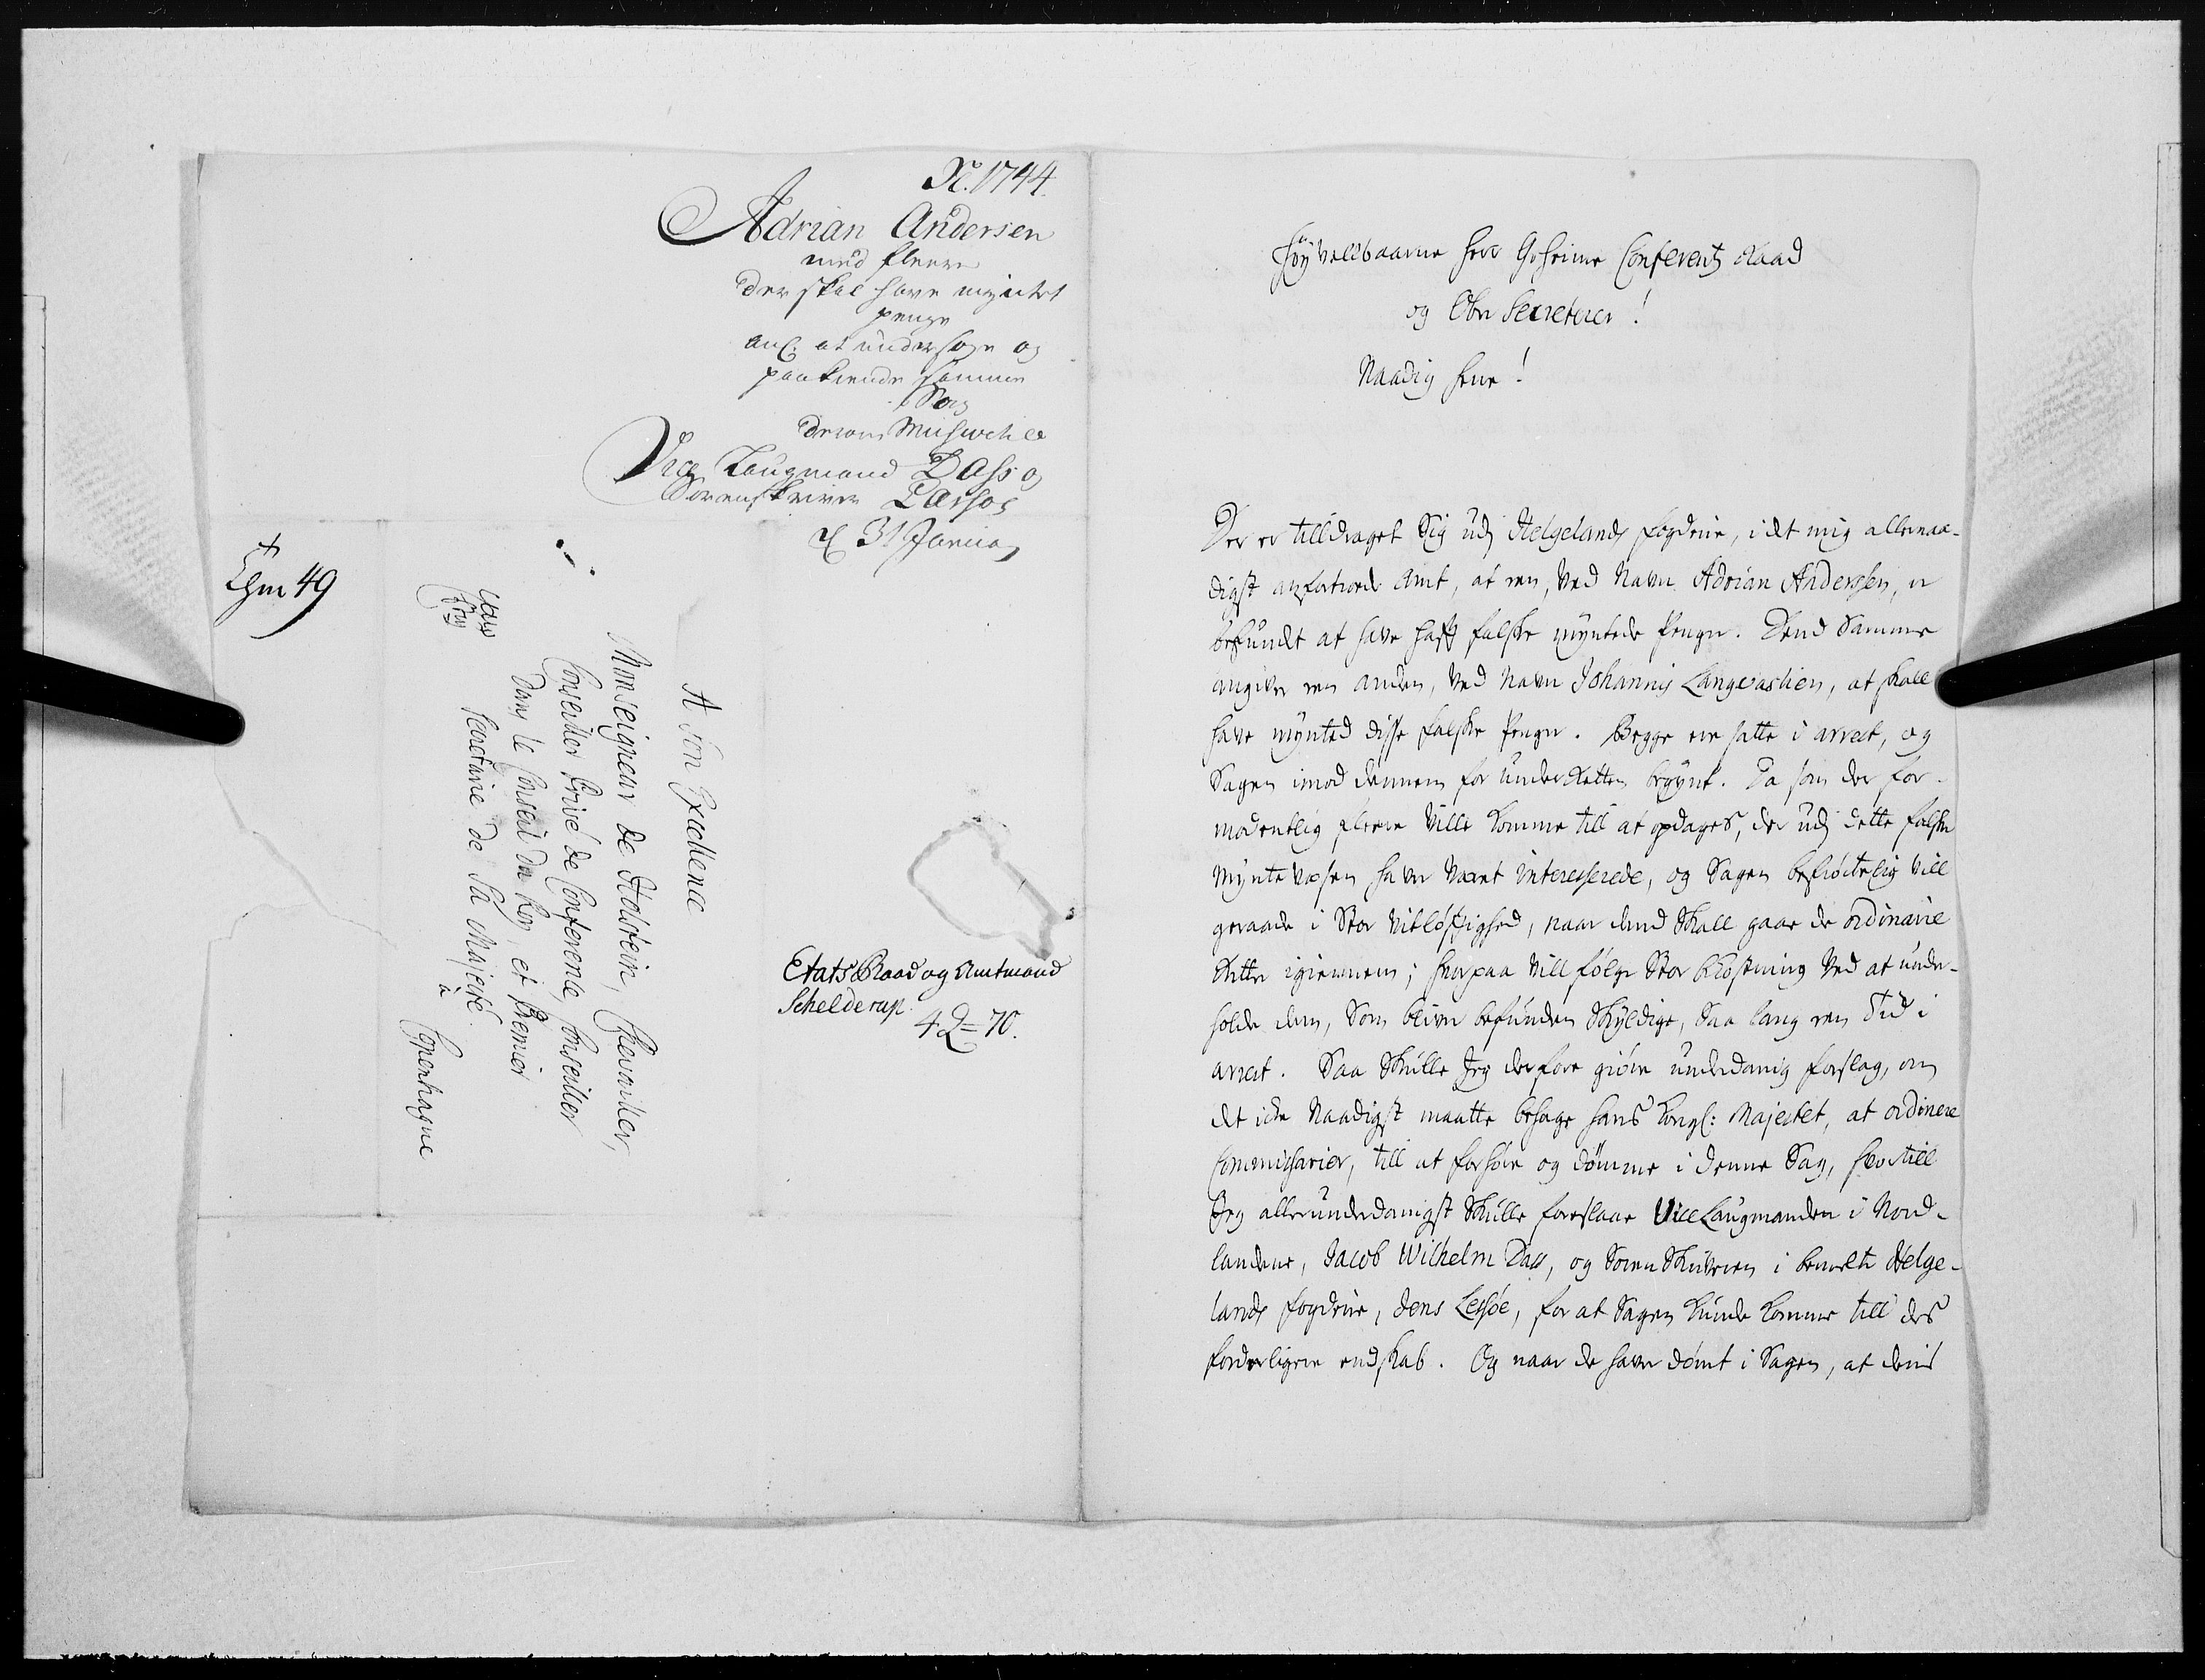 No. 1744.
Adrian Andersen
med fleere
der skal have myntet
penge
anl: at undersøge og
paakiende samme
Sag
derom Missive til
Vice Laugmand Dass og
Sorenskriver
31 Januar
49
A Son Excellence
Monseigneur de Holstein, Chevalier,
Conseiller Privé de Conference, Conseiller
dans le Conseil du Roy, et Premier
Secretaire de Sa Majesté.
à
Copenhague
Etats Raad og Amtmand
Schelderup.
42=70.
Høyvelbaarne Herr Geheime Conferentz Raad
og Ober Secreterer!
Naadig Herre!
Der er tilldraget Sig udj Helgelands fogderie, i det mig allernaa-
digst anfortroede Amt, at een, ved Navn Adrian Anderssen, er
befundt at have hafft falske myntede Penge. Dend Samme
angiver een anden, ved Navn Johannis Langvashien, at skall
have mynted disse falske Penge. Begge ere satte i arrest, og
Sagen imod dennem for underRetten begynt. Da som der for-
modentlig fleere ville komme till at opdages, der udj dette falske
mynte væsen haver været interesserede, og Sagen befrÿctelig vill
geraade i Stor vitløftighed, naar dend Skall gaae de ordinaire
Retter igiennem; hvorpaa vill følge Stor bekostning ved at under-
holde dem, Som bliver befunden Skyldige, Saa lang een Tid i
arrest. Saa Skulle Jeg derfore giøre underdanig forslag, om
det icke Naadigst maatte behage Hans Kongl: Majestet, at ordinere
Commissarier, till at forhøre og dømme i denne Sag, hvortill
Jeg allerunderdanigst Skulle foreslaae Vice Laugmanden i Nord-
landene, Jacob Wilhelm Dass, og Soren Skriveren i bemelte Helge-
lands fogderie, Jens Lessøe, for at Sagen kunde komme till des
forderligere endskab. Og naar de haver dømt i Sagen, at deris